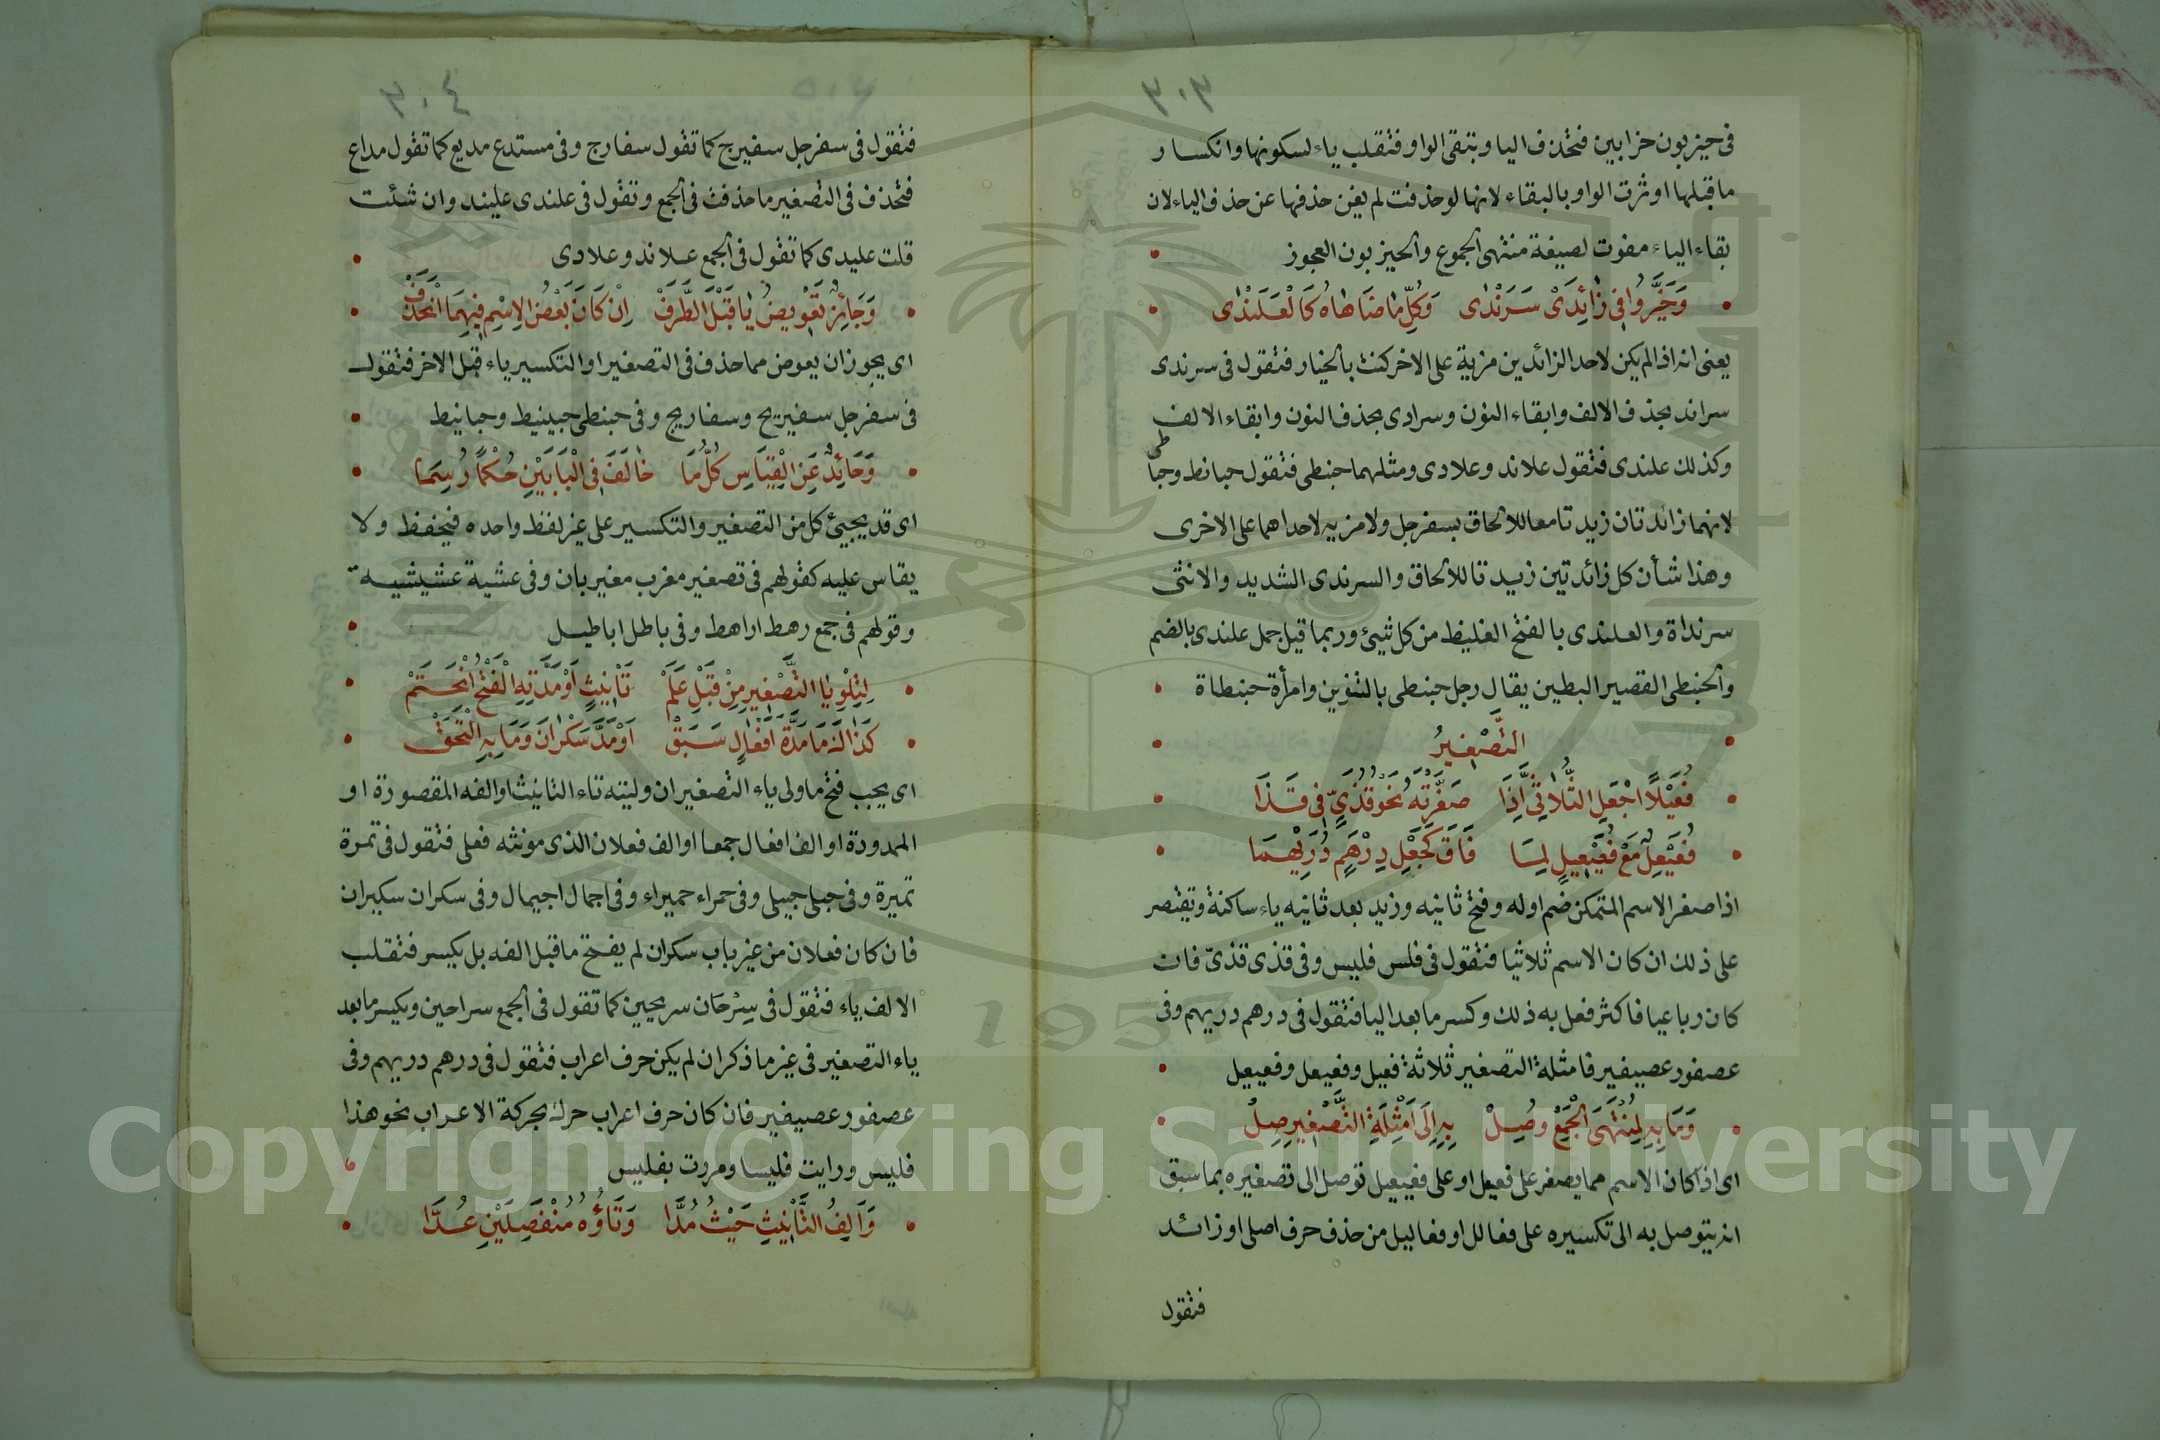 ٣٠٣
فى حيزبون حزابين فتحذف اليا وتبقى الواو فتقلب ياء لسكونها وانكسار
ما قبلها اوثرت الواو بالبقاء لانها لو حذفت لم يغن حذفها عن حذف الياء لان
بقاء الياء مفوت لصيغة منتهى الجموع والحيزبون العجوز
وَخَيَّرُوا فِى زَائِدَىْ سَرَنْدَى وَكُلِّ مَا ضَاهَاهُ كَالْعَلَنْدَى
يعنى انه اذا لم يكن لاحد الزائدين مزية على الاخر كنت بالخيار فتقول فى سرندى
سراند بحذف الالف وابقاء النون وسرادى بحذف النون وابقاء الالف
وكذلك علندى فتقول علاند وعلادى ومثلهما حبنطى فتقول حبانط وحباطى
لانهما زائدتان زيدتا معا للالحاق بسفرجل ولا مزيه لاحداهما على الاخرى
وهذا شأن كل زائدتين زيدتا للالحاق والسرندى الشديد والانثى
سرنداة والعلندى بالفتح الغليظ من كل شيئ وربما قيل جمل علندى بالضم
والحبنطى القصير البطين يقال رجل حبنطى بالتنوين وامرأة حبنطاة
التَّصْغِيرُ
فُعَيْلًا اجْعَلِ الثُّلَاثِيَّ إِذَا صَغَّرْتَهُ نَحْوُ قُذَيٍّ فِى قَذَا
فُعَيْعِلٌ مَعْ فُعَيْعِيلٍ لِمَا فَاقَ كَجَعْلِ دِرْهَمٍ دُرَيْهِمَا
اذا صغر الاسم المتمكن ضم اوله وفتح ثانيه وزيد بعد ثانيه ياء ساكنة ويقتصر
على ذلك ان كان الاسم ثلاثيا فتقول فى فلس فليس وفى قذى قذىّ فان
كان رباعيا فاكثر فعل به ذلك وكسر ما بعد اليا فتقول فى درهم دريهم وفى
عصفور عصيفير فامثلة التصغير ثلاثة فعيل وفعيعل وفعيعيل
وَمَا بِهِ لِمُنْتَهَى الْجَمْعِ وُصِلْ بِهِ اِلَى اَمْثِلَةِ التَّصْغِيرِ صِلْ
اى اذا كان الاسم مما يصغر على فعيعل او على فعيعيل توصل الى تصغيره بما سبق
انه يتوصل به الى تكسيره على فعالل او فعاليل من حذف حرف اصلى او زائد
فتقول
٣٠٤
فتقول فى سفرجل سفيرج كما تقول سفارج وفى مستدع مديع كما تقول مداع
فتحذف فى التصغير ما حذفت فى الجمع وتقول فى علندى عليند وان شئت
قلت عليدى كما تقول فى الجمع علاند وعلادى
وَجَائِزٌ تَعْوِيضُ يَا قَبْلَ الطَّرَفْ اِنْ كَانَ بَعْضُ الِاسْمِ فِيهِمَا انْحَذَفْ
اى يجوز ان يعوض مما حذف فى التصغير او التكسير ياء قبل الاخر فتقول
فى سفرجل سفيريج وسفاريج وفى حبنطى حبينيط وحبانيط
وَحَائِدٌ عَنِ الْقِيَاسِ كُلُّ مَا خَالَفَ فِى الْبَابَيْنِ حُكْمًا رُسِمَا
اى قد يجيئ كل من التصغير والتكسير على غير لفظ واحده فيحفظ ولا
يقاس عليه كقولهم فى تصغير مغرب مغيربان وفى عشية عشيشية
وقولهم فى جمع رهط اراهط وفى باطل اباطيل
لِتِلْوِ يَا التَّصْغِيرِ مِنْ قَبْلِ عَلَمْ تَأْنِيثٍ اَوْ مَدَّتِهِ الْفَتْحُ انْحَتَمْ
كَذَاكَ مَا مَدَّةَ اَفْعَالٍ سَبَقْ اَوْ مَدَّ سَكْرَانَ وَمَا بِهِ الْتَحَقْ
اى يجب فتح ما ولى ياء التصغير ان وليته تاء التانيث او الفه المقصورة او
الممدودة او الف افعال جمعا او الف فعلان الذى مونثه فعلى فتقول فى تمرة
تميرة وفى حبلى حبيلى وفى حمراء حميراء وفى اجمال اجيمال وفى سكران سكيران
فان كان فعلان من غير باب سكران لم يفتح ما قبل الفه بل يكسر فتقلب
الالف ياء فتقول فى سِرْحَان سريحين كما تقول فى الجمع سراحين ويكسر ما بعد
ياء التصغير فى غير ما ذكر ان لم يكن حرف اعراب فتقول فى درهم دريهم وفى
عصفور عصيفير فان كان حرف اعراب حرك بحركة الاعراب نحو هذا
فليس ورايت فليسا ومررت بفليس
وَاَلِفُ التَّأْنِيثِ حَيْثُ مُدَّا وَتَاؤُهُ مُنْفَصِلَيْنِ عُدَّا
1957
Copyright © King Saud University